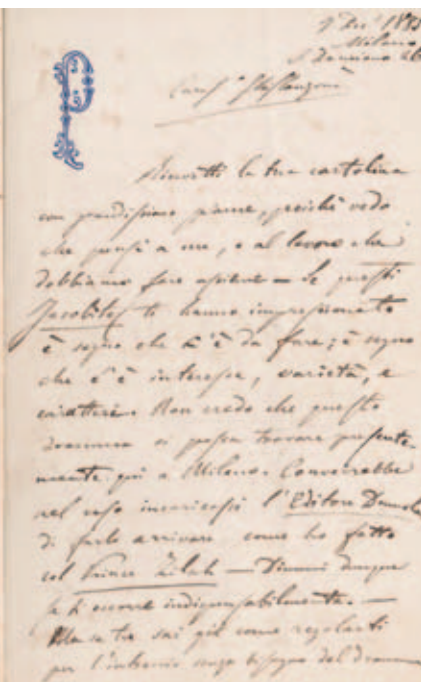 P
9 Dic.e 1885
Milano
S. Damiano
Car.mo
Ricevetti la tua cartolina
con grandissimo piacere, poichè vedo
che pensi a me, e al lavoro che
dobbiamo fare assieme — Se questi
Jacobites ti hanno impressionato
è segno che c'è da fare; è segno
che c'è interesse, varietà, e
caratteri. Non credo che questo
dramma si possa trovare presente-
mente qui a Milano. Converrebbe
nel caso incaricassi l'Editore
di farlo arrivare come ho fatto
col Prince Zilah — Dimmi dunque
se ti occorre indispensabilmente. —
Ma se tu sai già come regolarti
per l'intreccio senza bisogno del dramma